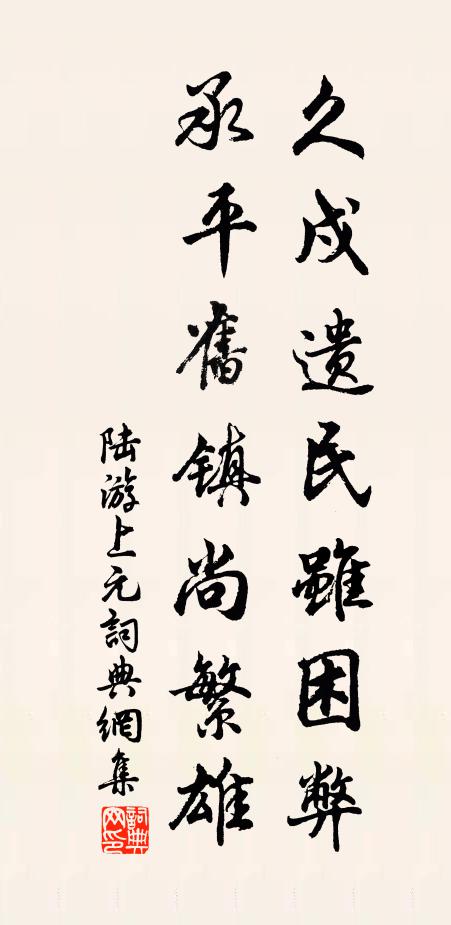 久戍遗民雖困弊
承平舊镇尚繁雄
陆游上元詞典網集
詞典网印